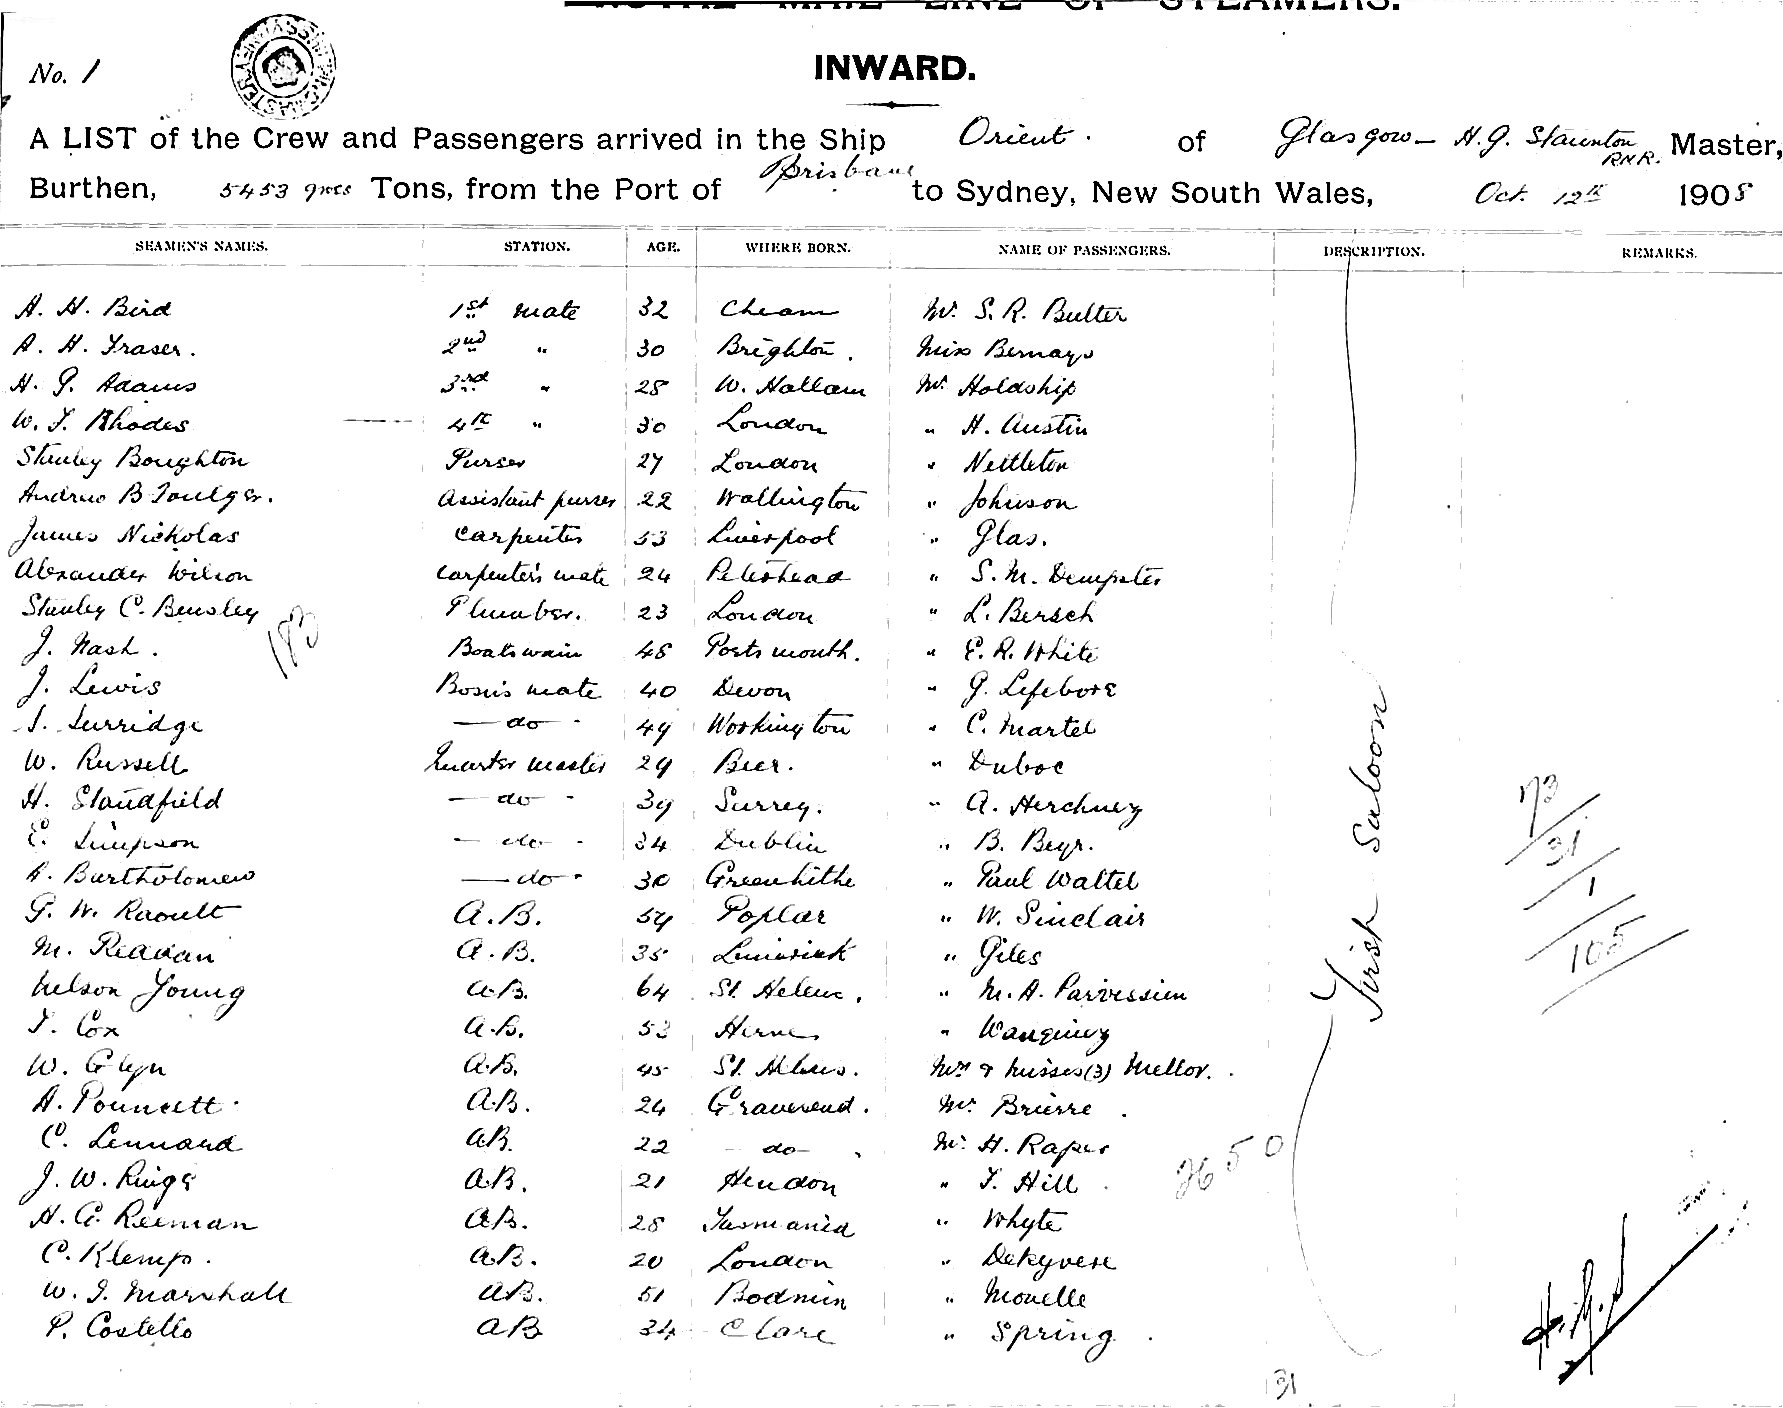 ROYAL MAIL LINE OF STEAMERS.
No. 1
INWARD.
A LIST of the Crew and Passengers arrived in the Ship Orient. of Glasgow - H. G. Staunton R.N.R. Master,
Burthen, 5453 gross Tons, from the Port of Brisbane to Sydney, New South Wales, Oct. 12th 1908
SEAMEN'S NAMES. STATION. AGE. WHERE BORN. NAME OF PASSENGERS. DESCRIPTION. REMARKS.
A. H. Bird 1st mate 32 Cheam Mr. S. R. Butter
A. H. Fraser. 2nd " 30 Brighton. Miss Bernays
H. G. Adams 3rd " 28 W. Hallam Mr. Holdship
W. F. Rhodes 4th " 30 London " H. Austin
Stanley Boughton Purser 27 London " Nettleton
Andrew B Foulger. Assistant purser 22 Wallington " Johnson
James Nicholas Carpenter 53 Liverpool " Glas.
Alexander Wilson Carpenter's mate 24 Peterhead " S. M. Dempster
Stanley C. Bensley Plumber. 23 London " L. Bersch
183
J. Nash. Boatswain 48 Portsmouth. " E. R. White
J. Lewis Bosn's mate 40 Devon " G. Lefebvre
S. Surridge - do - 49 Workington " C. Martel
W. Russell Quarter master 29 Beer. " Duboc
H. Standfield - do - 39 Surrey. " A. Herchney
E. Simpson - do - 34 Dublin " B. Beyr.
A. Bartholomew - do - 30 Greenhithe " Paul Waltel
G. W. Raoult A.B. 54 Poplar " W. Sinclair
M. Readan A.B. 35 Limerick " Giles
Nelson Young A.B. 64 St. Helena. " M. A. Parvessien
T. Cox A.B. 53 Herne " Wanquiez
W. Glyn A.B. 45 St. Albans. Mrs & Misses (3) Mellor.
A. Pouncett A.B. 24 Gravesend. Mr. Brierre.
C. Lennard A.B. 22 - do - Mr. H. Raper
J. W. Rings A.B. 21 Hendon " T. Hill
H. G. Reeman A.B. 28 Tasmania " Whyte
C. Klemp. A.B. 20 London " Dekyvere
W. J. Marshall A.B. 51 Bodmin " Monelle
P. Costello A.B. 34 Clare " Spring
First Saloon
73
31
1
105
31